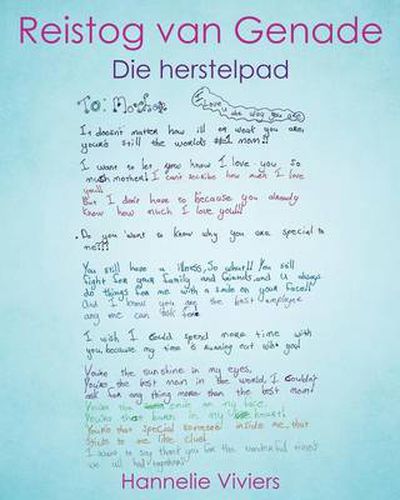 Reistog van Genade
Die herstelpad
To: Mother
I Love u the way you are
It doesn't matter how ill or weak you are,
you're still the worlds #1 mom!!
I want to let you know I love you so
much mother! I can't describe how much I love
you!!
But I don't have to because you already
know how much I love you!!!
Do you want to know why you are special to
me???
You still have a illness, So what!! You still
fight for your family and friends, and u always
do things for me with a smile on your face!!
And I know you are the best employee
any one can ask for
I wish I could spend more time with
you, because my time is running out with you!
You're the sunshine in my eyes,
You're the best mom in the world, I couldn't
ask for any thing more than the best mom!
You're the smile on my face,
You're that burn in my heart!
You're that special someone inside me, that
sticks to me like clue!
I want to say thank you for the wonderful times
we all had together!
Hannelie Viviers